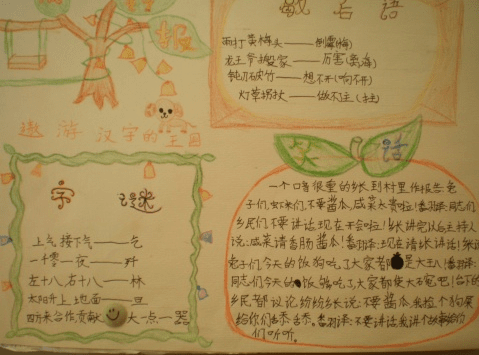 报
歇后语
雨打黄梅头——倒霉(梅)
龙王爷搬家——厉害(离海)
钝刀破竹——想不开(劈不开)
灯草拐杖——做不了主(拄)
遨游汉字的王国
字谜
上气接下气——乞
一千零一夜——歼
左十八右十八——林
太阳升上地面——旦
四方来合作贡献大一点——器
笑话
一个口音很重的乡长到村里作报告兔
子们,虾米们,不要酱瓜,咸菜太贵啦!翻译:同志们,
乡民们不要讲话现在开会啦!乡长讲完以后主持人
说:咸菜请香肠酱瓜!翻译:现在请乡长讲话!乡长
兔子们今天的饭狗吃了大家都是大王八!翻译:
同志们今天的饭够吃了大家都使大碗吧!台下的
乡民都议论纷纷乡长说:不要酱瓜我捡个狗屎
给你们舔舔。翻译:不要讲话我讲个故事给你
们听听。